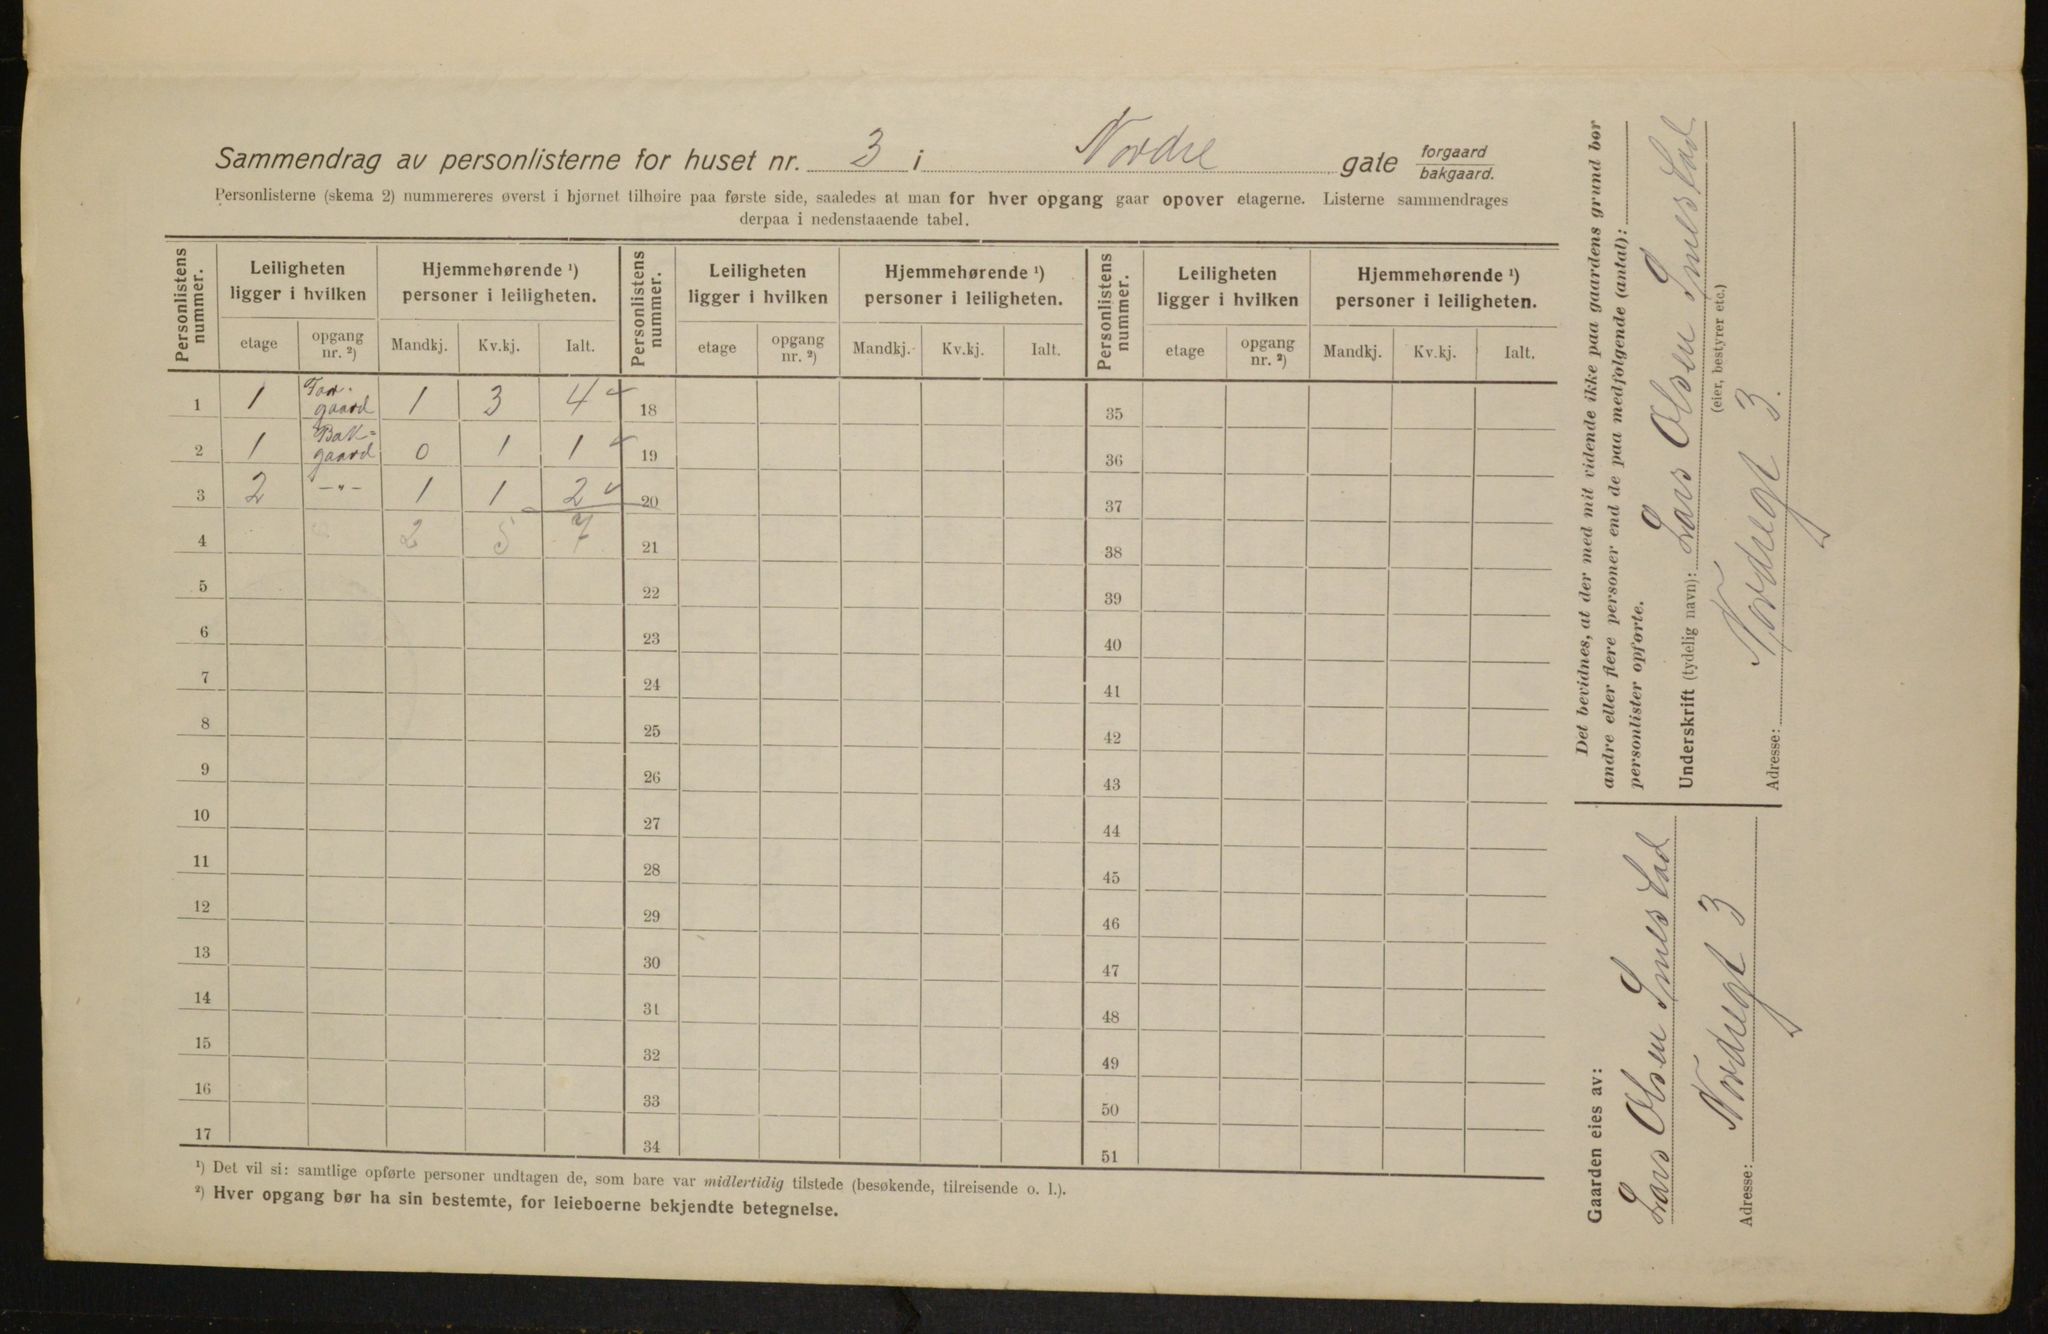 Sammendrag av personlisterne for huset nr. 3 i Nordre gate forgaard bakgaard.
Personlisterne (skema 2) nummereres øverst i hjørnet tilhøire paa første side, saaledes at man for hver opgang gaar opover etagerne. Listerne sammendrages
derpaa i nedenstaaende tabel.
Personlistens nummer. Leiligheten ligger i hvilken Hjemmehørende ¹) personer i leiligheten. Personlistens nummer. Leiligheten ligger i hvilken Hjemmehørende ¹) personer i leiligheten. Personlistens nummer. Leiligheten ligger i hvilken Hjemmehørende ¹) personer i leiligheten.
etage opgang nr. ²) Mandkj. Kv.kj. Ialt. etage opgang nr. ²) Mandkj. Kv.kj. Ialt. etage opgang nr. ²) Mandkj. Kv.kj. Ialt.
1 1 For-gaard 1 3 4 18 35
2 1 Bak=gaard 0 1 1 19 36
3 2 —"— 1 1 2 20 37
4 2 5 7 21 38
5 22 39
6 23 40
7 24 41
8 25 42
9 26 43
10 27 44
11 28 45
12 29 46
13 30 47
14 31 48
15 32 49
16 33 50
17 34 51
¹) Det vil si: samtlige opførte personer undtagen de, som bare var midlertidig tilstede (besøkende, tilreisende o. l.).
²) Hver opgang bør ha sin bestemte, for leieboerne bekjendte betegnelse.
Det bevidnes, at der med mit vidende ikke paa gaardens grund bor
andre eller flere personer end de paa medfølgende (antal):
personlister opførte.
Underskrift (tydelig navn): Lars Olsen
(eier, bestyrer etc.)
Adresse: Nordregt 3.
Gaarden eies av:
Lars Olsen
Adresse: Nordregt 3